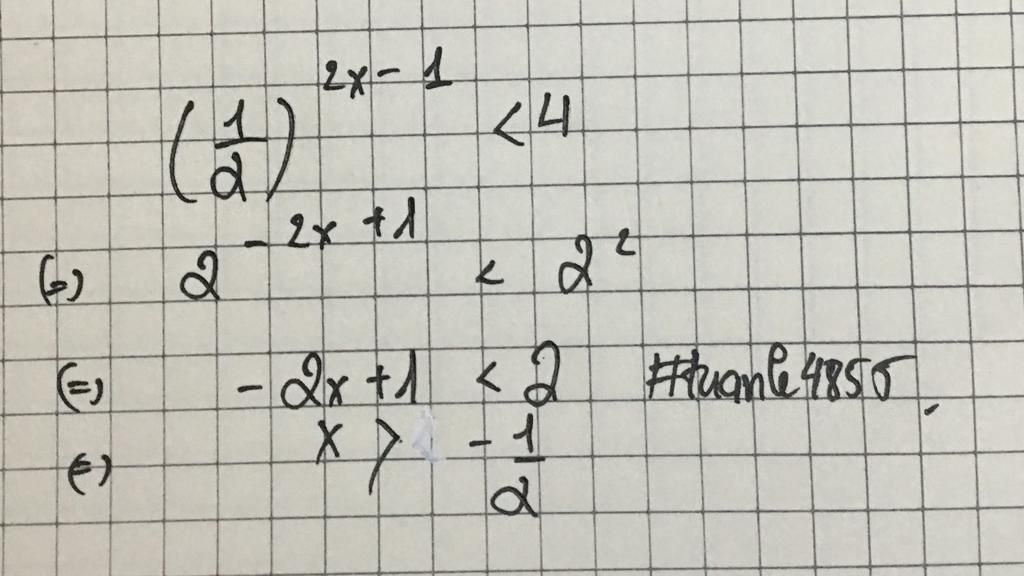 (1/2)^(2x-1) < 4
(=) 2^(-2x+1) < 2^2
(=) -2x+1 < 2 #tuanle4855.
(=) x > -1/2